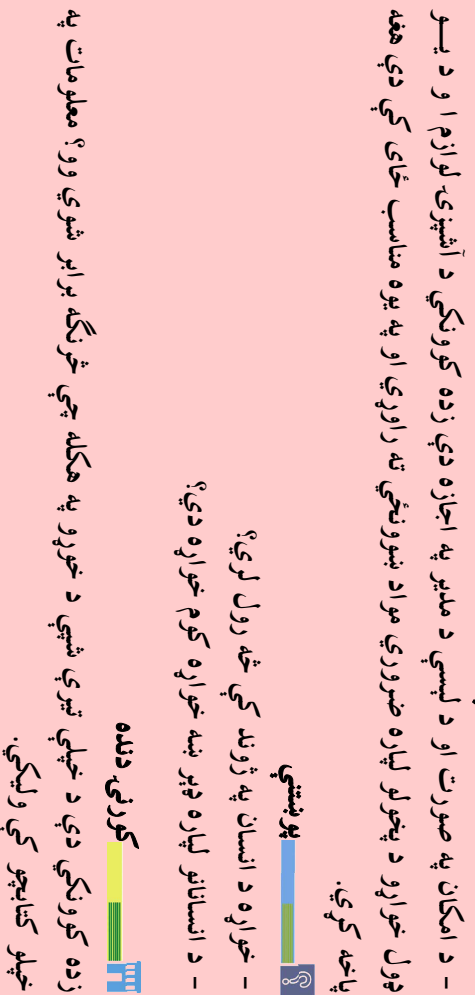 - د امکان په صورت او د لیسې د مدیر په اجازه دې زده کوونکي د آشپزۍ لوازم ا و د یــو
ډول خوارو د پخولو لپاره ضروري مواد ښوونځي ته راوړي او په یوه مناسب ځای کې دې هغه
پاخه کړي.
پوښتنې
- خواړه د انسان په ژوند کې څه رول لري؟
- د انسانانو لپاره ډېر ښه خواړه کوم خواړه دي؟
کورنۍ دنده
زده کوونکي دې د خپلې تېرې شپې د خوړو په هکله چې څرنګه برابر شوي وو؟ معلومات په
خپلو کتابچو کې ولیکي.